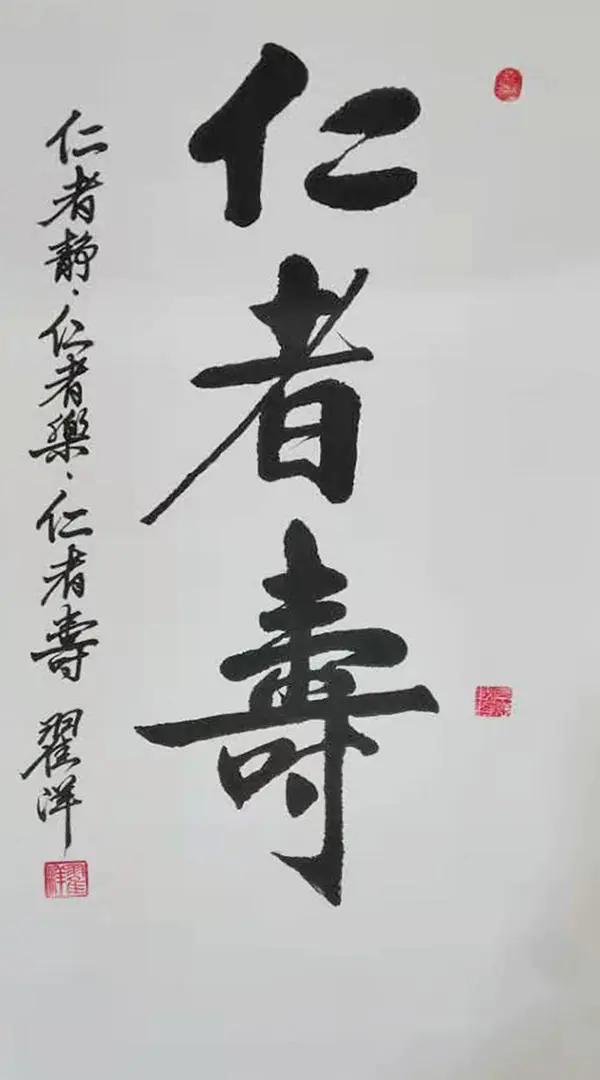 仁者壽
仁者靜、仁者樂、仁者壽 翟洋
翟洋